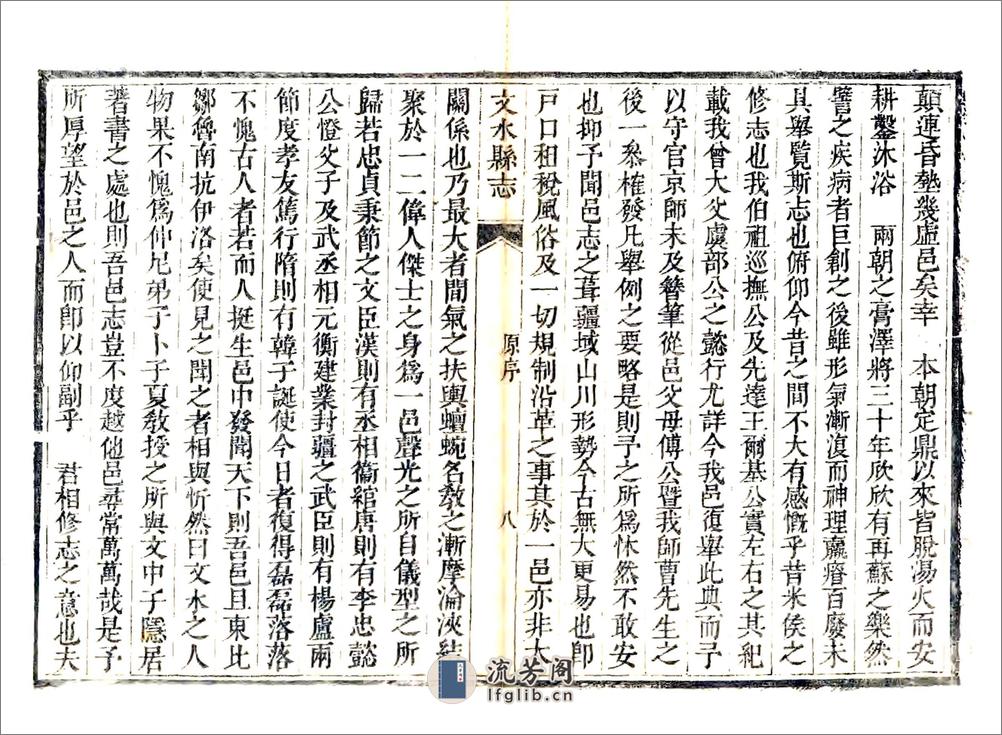 顛連昏墊幾虛邑矣幸　本朝定鼎以來皆脫湯火而安
耕鑿沐浴　兩朝之膏澤將三十年欣欣有再蘇之樂然
譬之疾病者巨創之後雖形氣漸復而神理羸瘠百廢未
具舉覽斯志也俯仰今昔之間不大有感慨乎昔米侯之
修志也我伯祖巡撫公及先達王爾基公實左右之其紀
載我曾大父虞部公之懿行尤詳今我邑復舉此典而予
以守官京師未及簪筆從邑父母傅公暨我師曹先生之
後一叅榷發凡舉例之要略是則予之所爲怵然不敢安
也抑予聞邑志之葺疆域山川形勢今古無大更易也卽
戸口租稅風俗及一切規制沿革之事其於一邑亦非大
文水縣志
原序
八
關係也乃最大者間氣之扶輿蟺蜿名敎之漸摩淪浹結
聚於一二偉人傑士之身爲一邑聲光之所自儀型之所
歸若忠貞秉節之文臣漢則有丞相衞綰唐則有李忠懿
公憕父子及武丞相元衡建業封疆之武臣則有楊盧兩
節度孝友篤行隋則有韓子誕使今日者復得磊磊落落
不愧古人者若而人挺生邑中發聞天下則吾邑且東比
鄒魯南抗伊洛矣使見之聞之者相與忻然曰文水之人
物果不愧爲仲尼弟子卜子夏敎授之所與文中子隱居
著書之處也則吾邑志豈不度越他邑尋常萬萬哉是予
所厚望於邑之人而卽以仰副乎　君相修志之意也夫
流芳阁
lfglib.cn